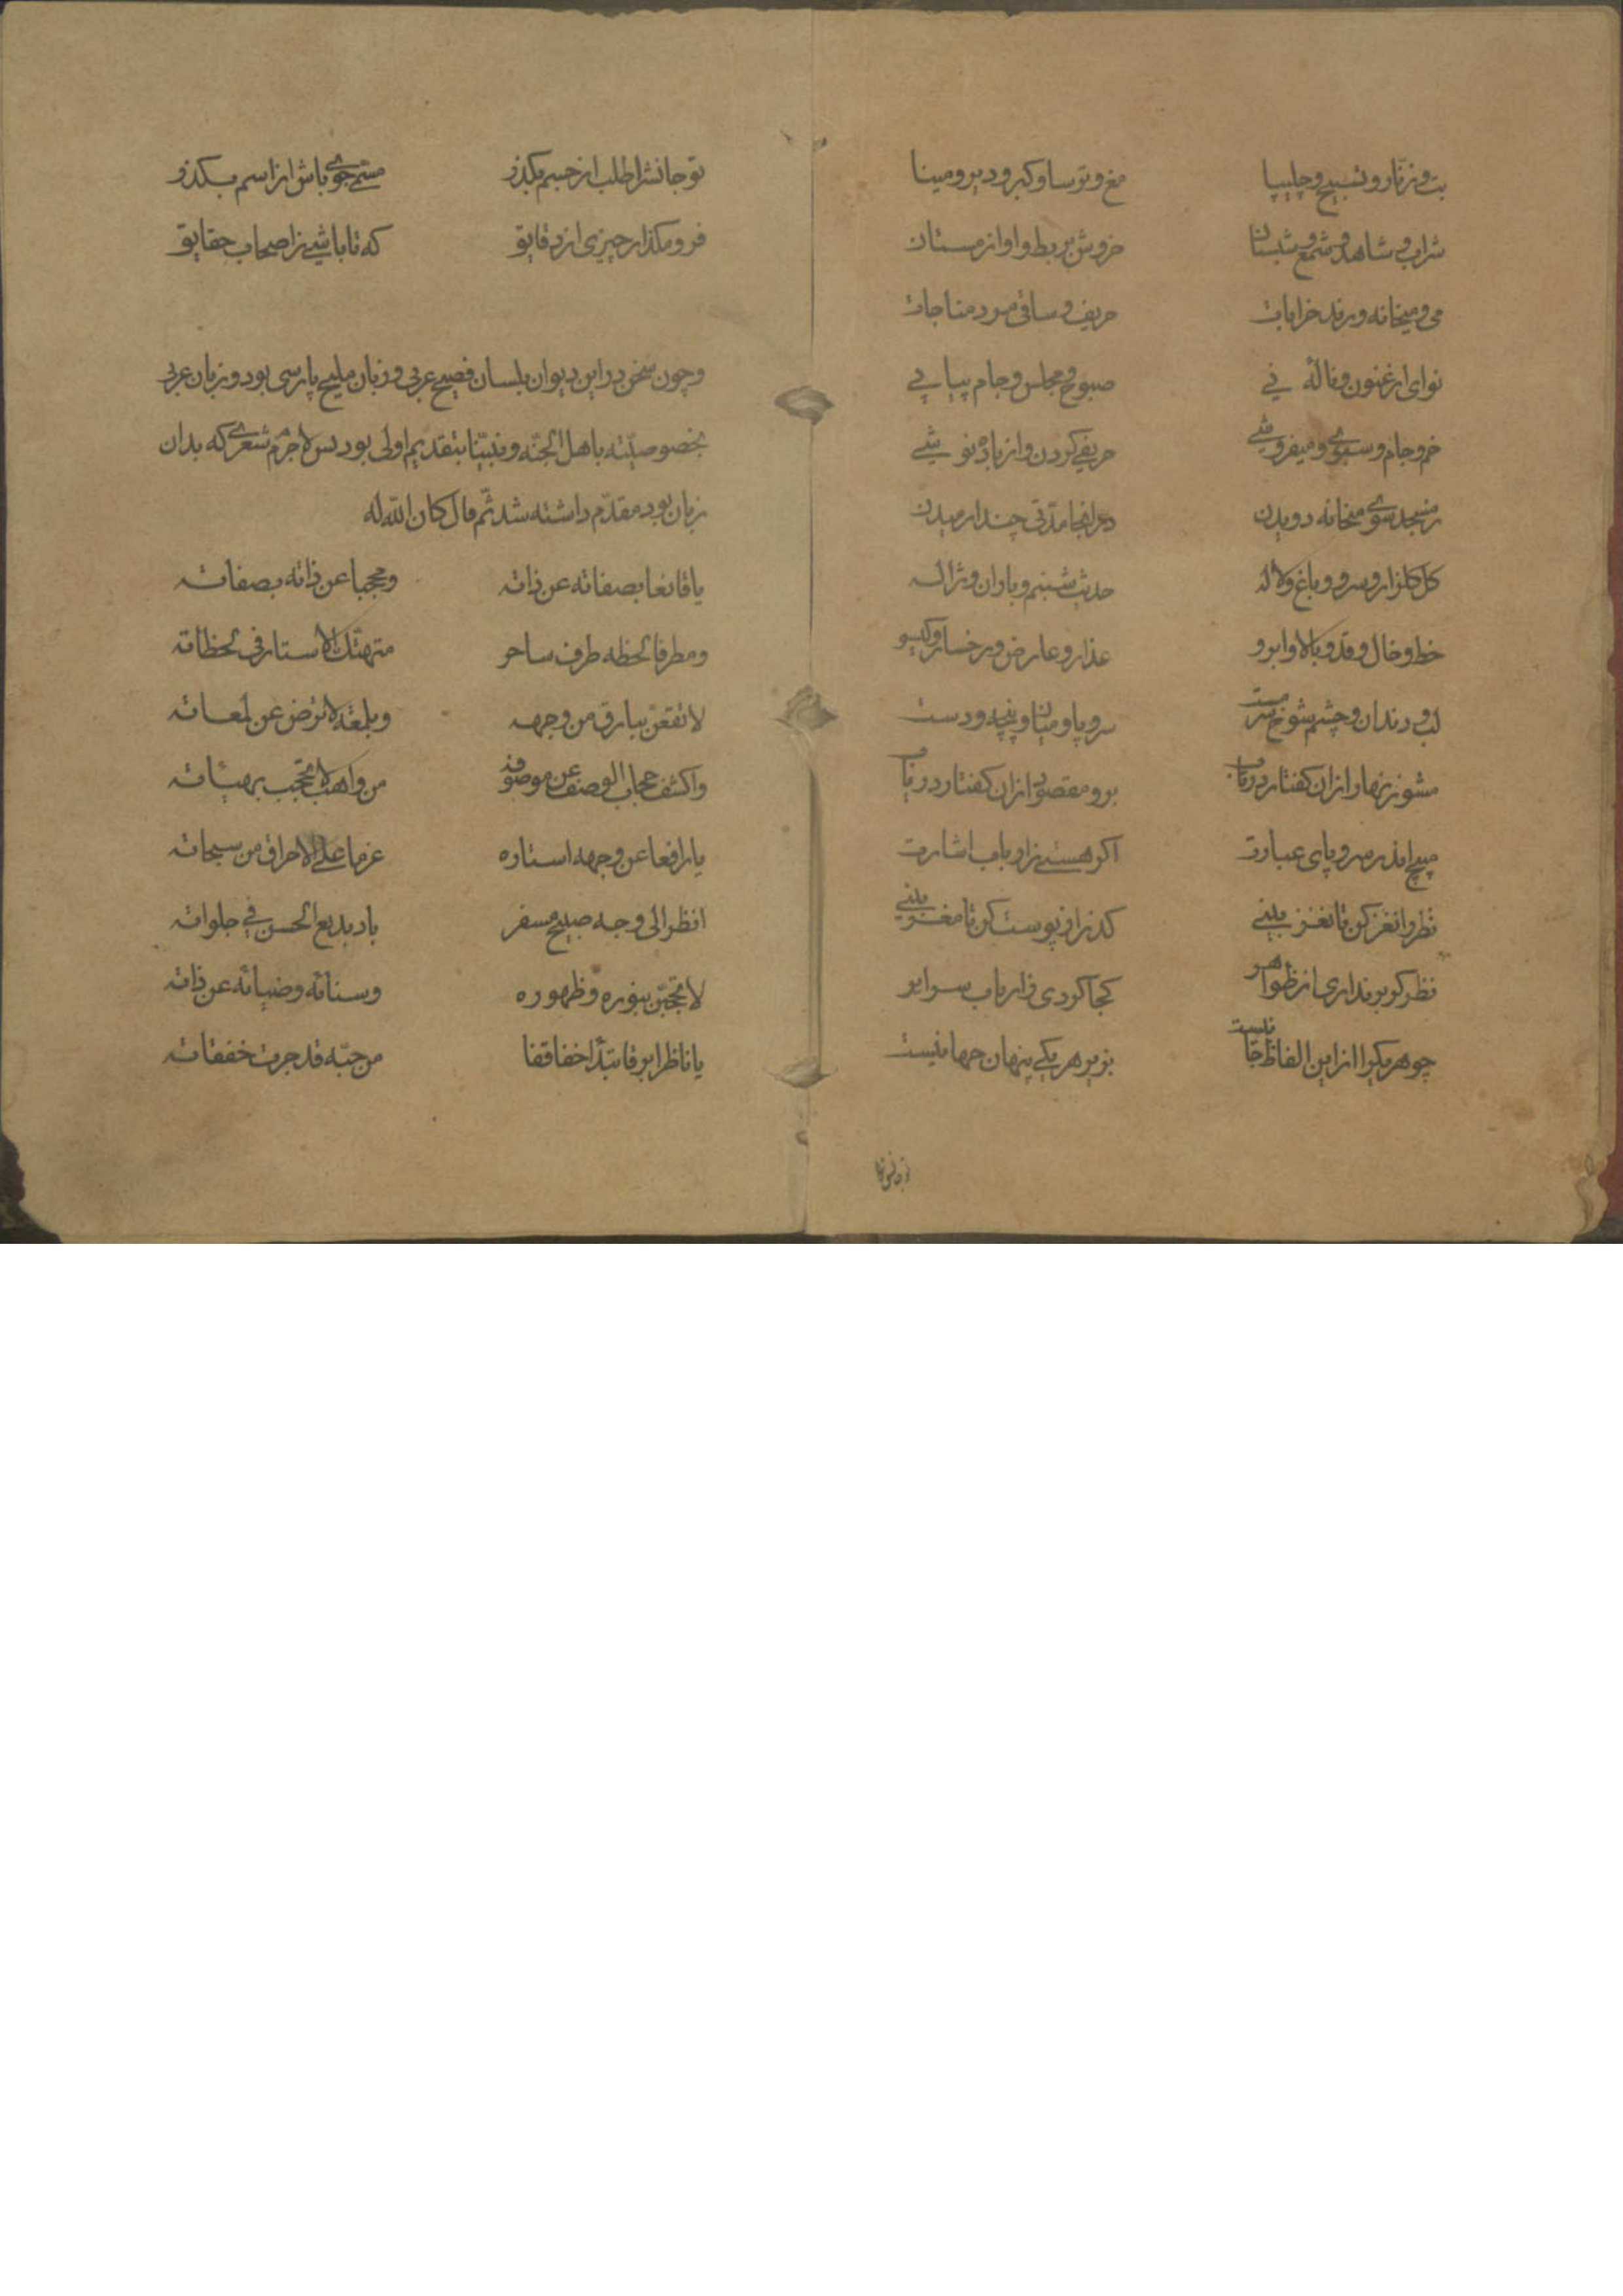 بت و زنّار و تسبیح و چلیپا مغ و ترسا و کبر و دیر و مینا
شراب و شاهد و شمع و شبستان خروش بربط و اواز مستان
می و میخانه و رند خرابات حریف و ساقی مرد مناجات
نوای ارغنون و نالهٔ نی صبوح و مجلس و جام پیاپی
خم و جام و سبوی و میفروشی حریفی کردن و از باده نوشی
ز مسجد سوی میخانه دویدن در انجا مدّتی چند ارمیدن
کل کلزار و سرو و باغ و لاله حدیث شبنم و باران و ژاله
خط و خال و قد و بالا و ابرو عذار و عارض و رخسار و کیسو
لب و دندان و چشم شوخ سرمست سر و پا و میان و پنجه و دست
مشو زنهار ازان کفتار در تاب برو مقصود ازان کفتار دریاب
مپیچ اندر سر و پای عبارت اکر هستی ز ارباب اشارت
نظر را نغز کن تا نغز بینی کذر از پوست کن تا مغز بینی
نظر کر بر نداری از ظواهر کجا کردی ز ارباب سرایر
چو هر یک را ازین الفاظ جانیست بزیر هر یکی پنهان جهانیست
تو جانش
تو جانش را طلب از جسم بکذر مسمّی جوی باش از اسم بکذر
فرو مکذار چیزی از دقایق که تا باشی ز اصحاب حقایق
و چون سخن در این دیوان بلسان فصیح عربی و زبان ملیح پارسی بود و زبان عربی
بخصوصیّته باهل الجنّه و نبیّنا بتقدیم اولی بود بس لا جرم شعری که بدان
زبان بود مقدّم داشته شد ثمّ قال کان الله له
یا قانعا بصفاته عن ذاته ومحجبا عن ذاته بصفاته
ومطرفا لحظه طرف ساحر متهتّك الاستار فی لحظاته
لا تقنعن ببارق من وجهه وبلمعة لا ترض عن لمعاته
واکشف حجاب الوصف عن موصوفه من واهب لا تحتجب بهباته
یا رافعا عن وجهه استاره عزما علی الاحراق من سبحاته
انظر الی وجه صبیح مسفر باد بدیع الحسن فی جلواته
لا تحجبن بنوره وظهوره وسنائه وضیائه عن ذاته
یا ناظرا برقا تبدّا خفاقفا من حبّه قد جرت خفقاته